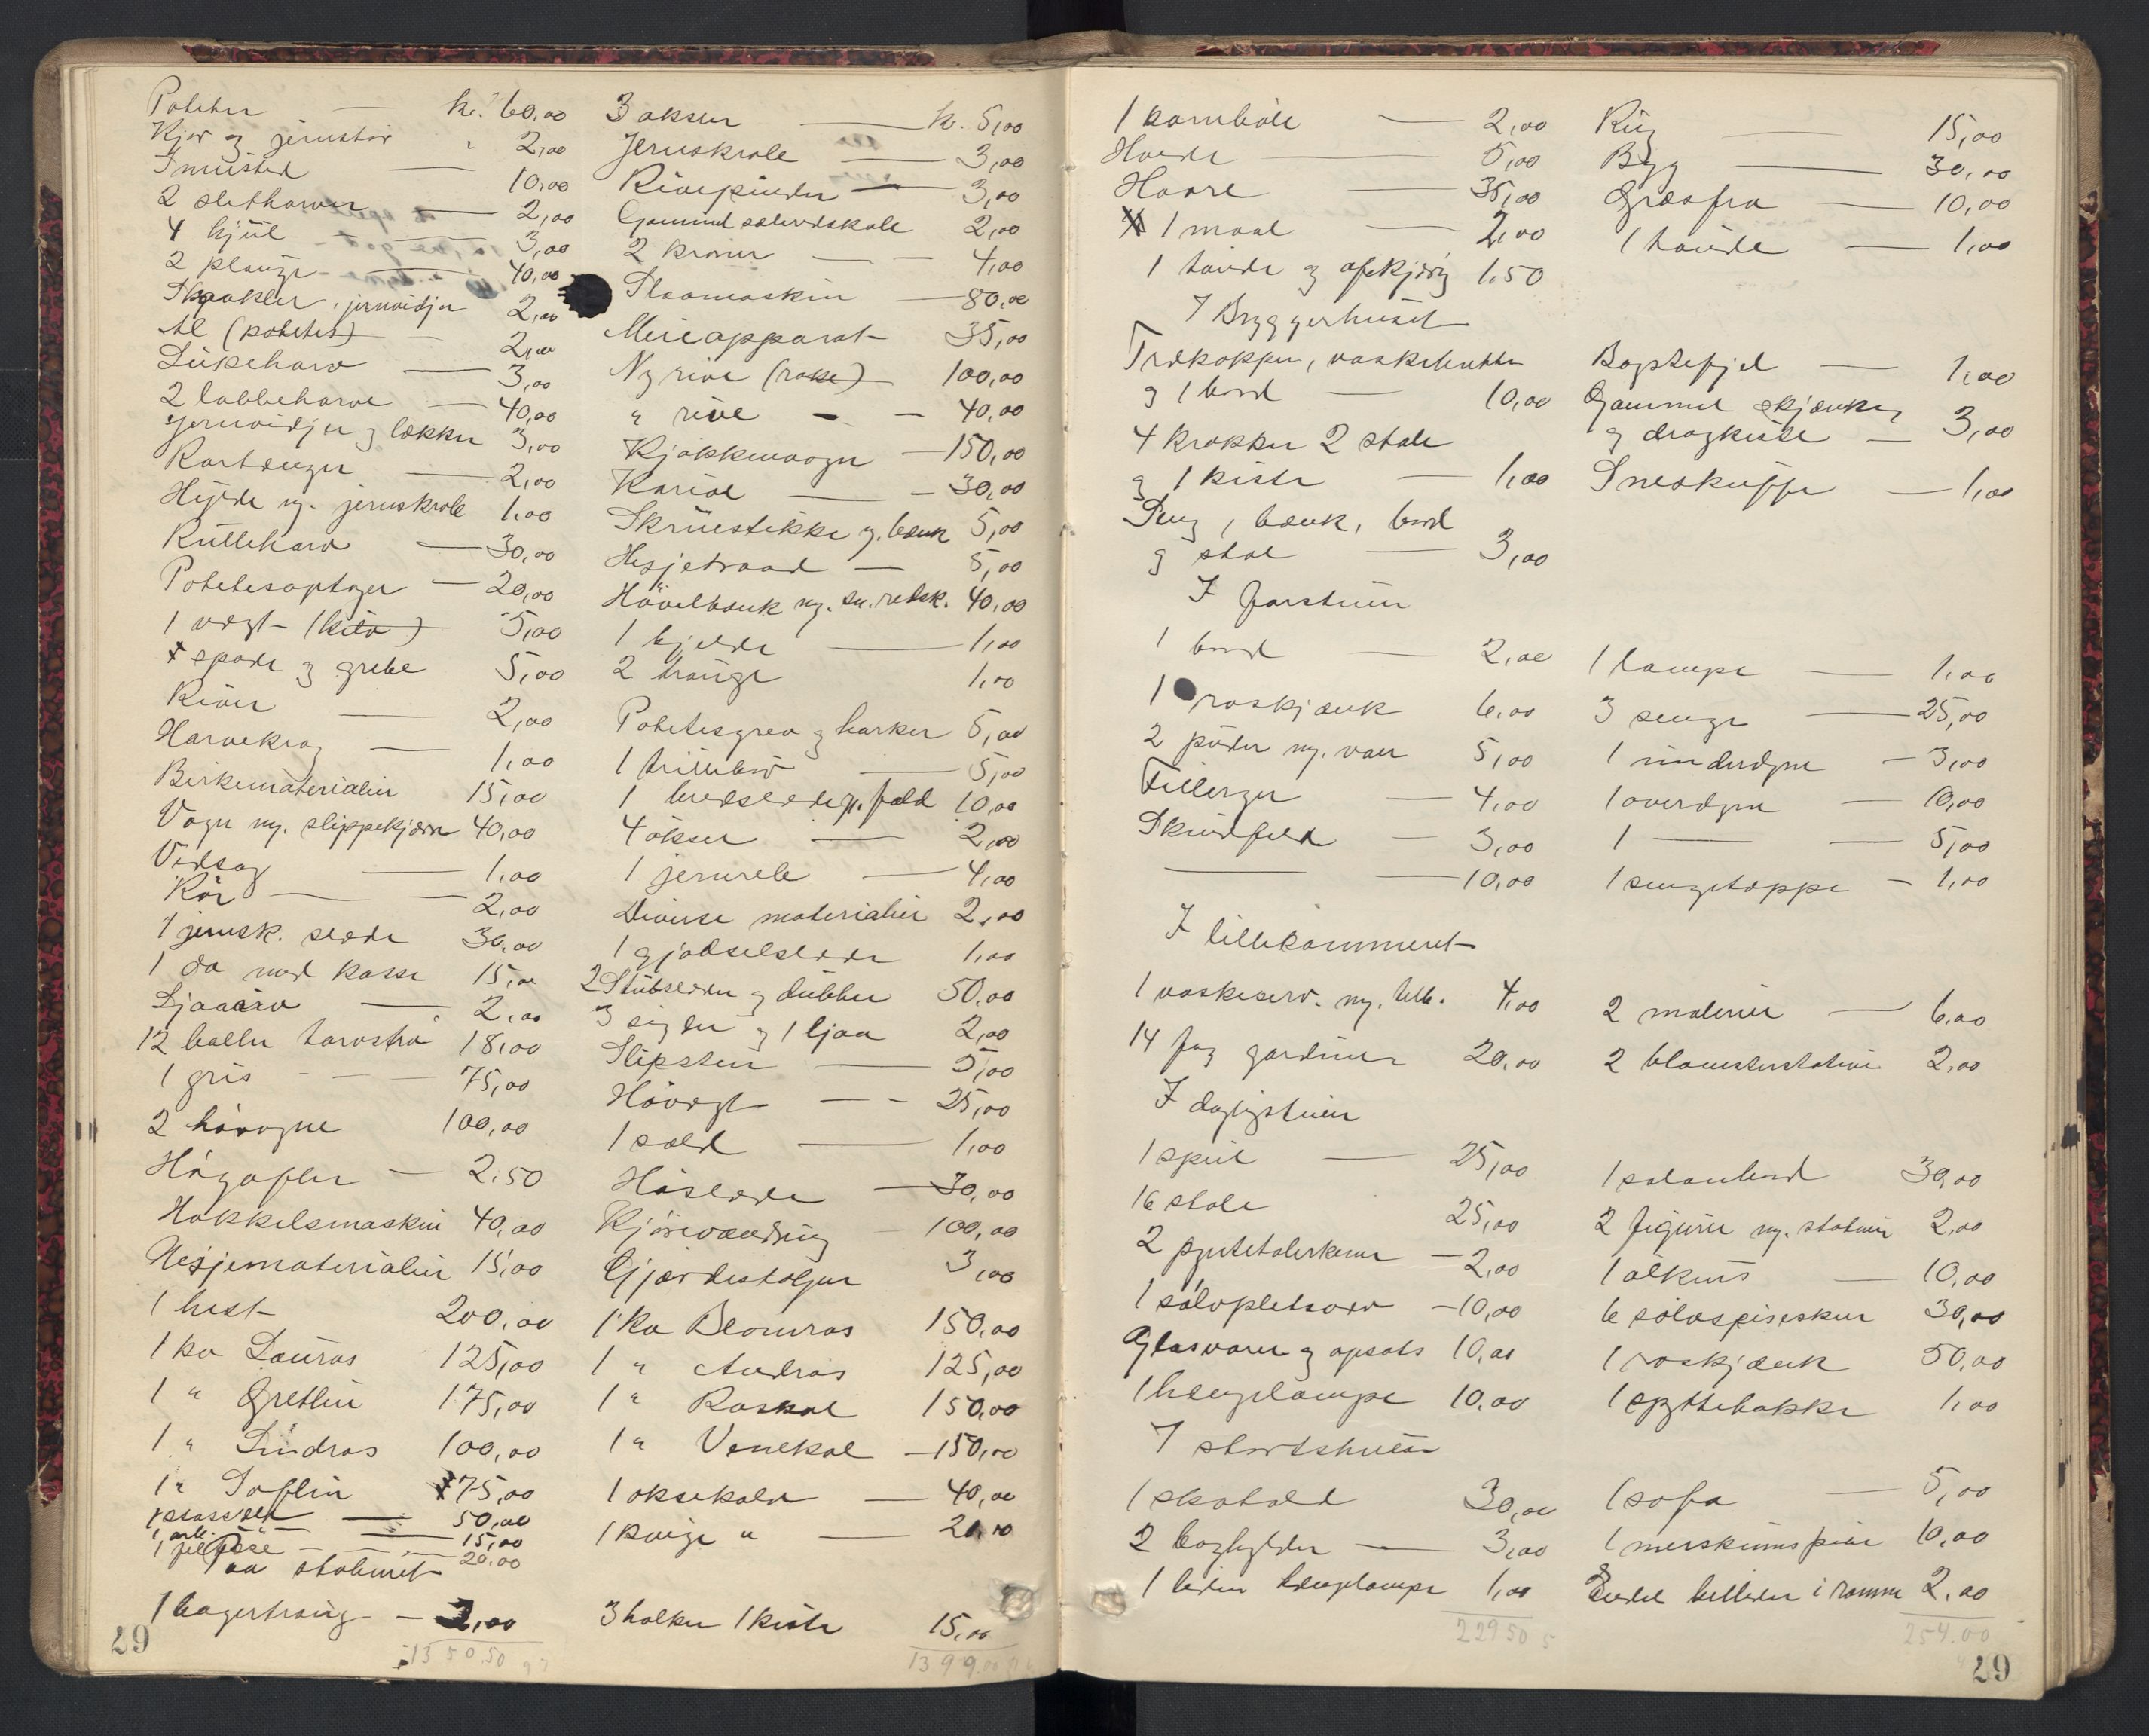 Poteter — kr. 60,00
Kjør og jernstør " 2,00
Smusted — 10,00
2 sletharver — 2,00
4 hjul — 3,00
2 plouge — 40,00
Skaakler, jernvidjer 2,00
Al (potetes) — 2,00
Lukeharv — 3,00
2 labbeharve — 40,00
Jernvidjer og lækker 3,00
Kartænger — 2,00
Hejde og jernskrole 1.00
Rulleharv — 30,00
Potetesoptager — 20,00
1 vægt (kilo) 5,00
spade og grebe 5,00
River — 2,00
Harvekrog — 1,00
Birkematerialier 15,00
Vogn og slippekjærre 40,00
Vedsag — 1,00
Rör — 2,00
1 jernsk. slæde 30,00
1 do med kasse 15,00
Ljaaorv — 2,00
12 baller tarostrå 18,00
1 gris — 75,00
2 hövogne 100,00
Högafler — 2.50
Hakkelsmaskin 40,00
Hesjematerialier 15,00
1 hest 200,00
1 ku Lauras 125,00
1 " Gretlin 175,00
1 " Lindras 100,00
1 " Toflin 175,00
50,00
15,00
20.00
Paa stabburet
1 bagertroug — 2,00
1350.50
29
3 oksen — kr. 5,00
Jernskrole — 3,00
Rivepinder — 3,00
Gammel 2,00
2 kraner — 4,00
Slaamaskin — 80,00
Meieapparat 35,00
Ny rive (rake) 100,00
" rive — 40,00
Kjøkkenvogn — 150,00
Kariol — 30,00
Skruestikke og bænk 5,00
Hesjetraad — 5,00
Hövelbænk og sn. redsk. 40,00
1 bjelde — 1,00
2 trouge 1,00
Potetesgrev og harker 5,00
1 trillebør — 5,00
1 bredslæde og fæld 10,00
4 økser — 2,00
1 jernrele — 4,00
Diverse materialier 2,00
1 gjødselslæde 1,00
2 Stubslæder og dubber 50,00
3 sigder og 1 ljaa 2,00
Slipsten — 5,00
Hövægt — 25,00
1 sold — 1,00
Höslæde — 30,00
Kjörevending — 100,00
Gjærdestolper 3,00
1 ku Blomras 150,00
1 " Andras 125,00
1 " Raskol 150,00
1 " Venekol — 150,00
1 oksekalv — 40,00
1 kvige " — 20.00
3 holker 1 kiste 15,00
1399.00
1 kornbale — 2,00
Hvede — 5,00
Havre — 35,00
1 maal — 2,00
1 tønde og afskjæring 1,50
I Bryggerhuset
Trækopper, vaskebutter
og 1 bord — 10,00
4 krakker 2 stole
og 1 kiste — 1,00
Seng, bænk, bord
og stol — 3,00
I Forstuen
1 bord — 2,00
1 roskjænk 6,00
2 puder og vaer 5,00
Filleryer — 4,00
Skindfeld — 3,00
— 10,00
I lillekammeret
1 vaskeserv. og tilb. 4,00
14 fag gardiner 20,00
I dagligstuen
1 speil — 25,00
16 stole 25,00
2 pyntetalerkener — 2,00
1 sølvpletsserv — 10,00
Glasvarer og opsats 10,00
1 hængelampe 10,00
I storstuen
1 skatold 30,00
2 boghylder — 3,00
1 liden hængelampe 1,00
229 50
Rug — 15,00
Byg — 30,00
Græsfrø — 10,00
1 tønde — 1,00
Bagstefjel — 1,00
Gammel skjænk
og dragkiste — 3,00
Sneskuffe — 1,00
1 lampe — 1,00
3 senge — 25,00
1 underdyne — 3,00
1 overdyne — 10,00
1 — — 5,00
1 sengetæppe — 1,00
2 malerier — 6,00
2 blomsterstativer 2,00
1 salonbord 30,00
2 figurer og statuer 2,00
1 album — 10,00
6 sølvspiseskeer 30,00
1 roskjænk 50,00
1 spyttebakke 1,00
1 sofa — 5,00
1 merskumspibe 10,00
Endel billeder i ramme 2,00
254.00
29